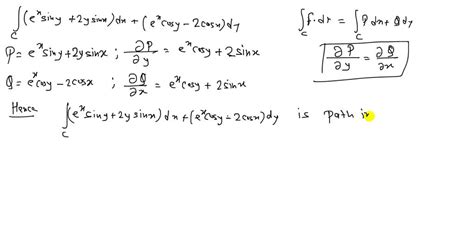 ∫_C (e^x siny + 2y sinx) dx + (e^x cosy - 2cosx) dy
∫_C f.dr = ∫_C P dx + Q dy
P = e^x siny + 2y sinx ; ∂P/∂y = e^x cosy + 2 sinx
∂P/∂y = ∂Q/∂x
Q = e^x cosy - 2cosx ; ∂Q/∂x = e^x cosy + 2 sinx
Hence ∫_C (e^x siny + 2y sinx) dx + (e^x cosy - 2cosx) dy is path in